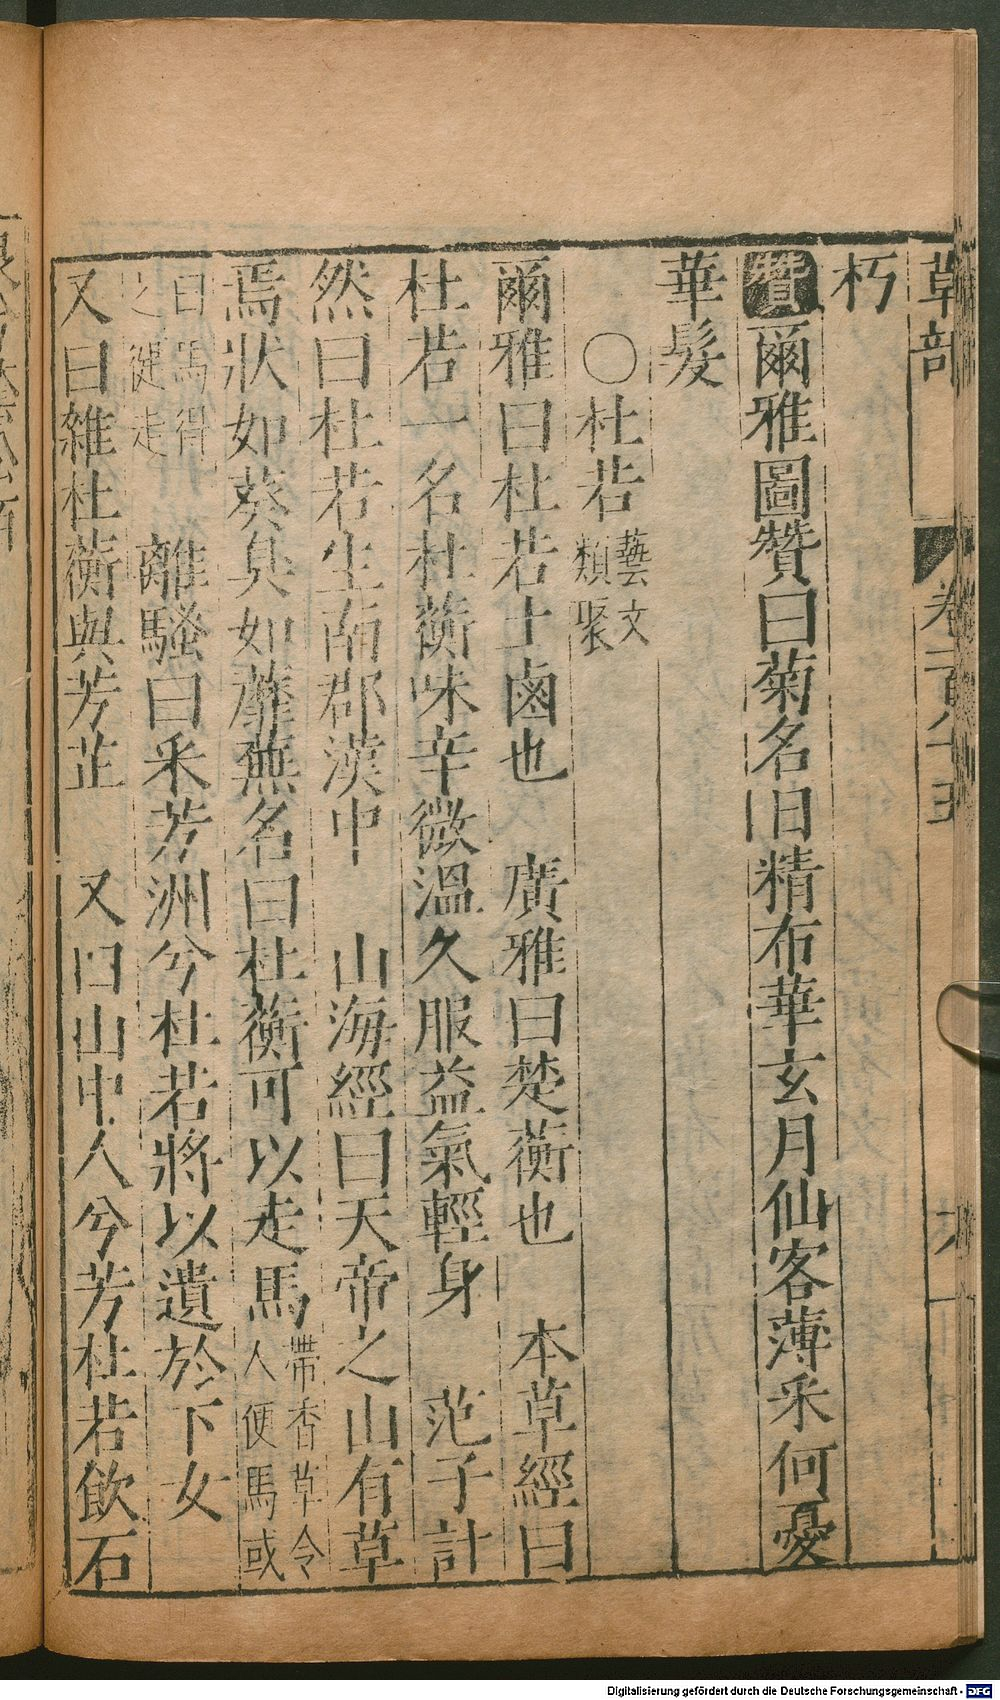 草部 卷一百八十五
朽
贊爾雅圖贊曰菊名日精布華玄月仙客薄采何憂
華髮
○杜若藝文類聚
爾雅曰杜若土鹵也 廣雅曰楚蘅也 本草經曰
杜若一名杜蘅味辛微溫久服益氣輕身 范子計
然曰杜若生南郡漢中 山海經曰天帝之山有草
焉狀如葵臭如蘼蕪名曰杜蘅可以走馬帶香草令人便馬或
曰馬得之健走 離騷曰采芳洲兮杜若將以遺於下女
又曰雜杜蘅與芳芷 又曰山中人兮芳杜若飲石
Digitalisierung gefördert durch die Deutsche Forschungsgemeinschaft - DFG